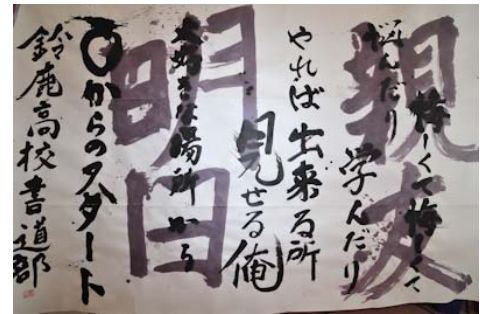 親友
悔しくて悔しくて
悩んだり
学んだり
やれば出来る所
見せる俺
明日
大好きな場所から
〇からのスタート
鈴鹿高校書道部